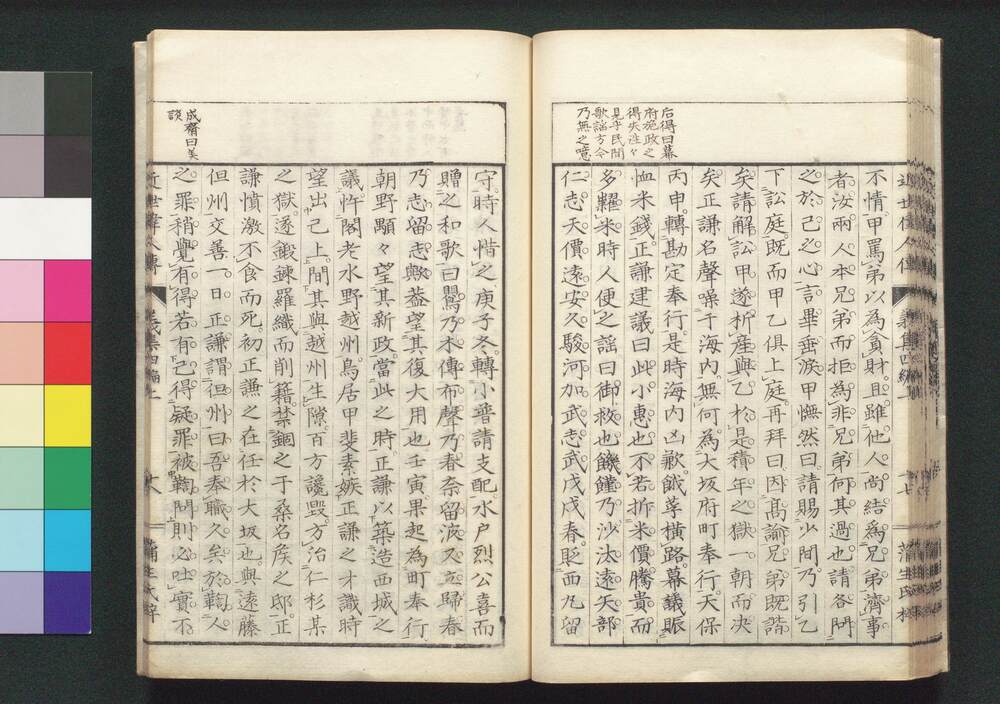 后得曰幕
府施政之
得失往々
見乎民間
歌謡方今
乃無之噫
不情甲罵弟以為貪財且雖他人尚結為兄弟濟事
者汝兩人本兄弟而拒為非兄弟何其過也請各問
之於己之心言畢垂淚甲憮然曰請賜少間乃引乙
下訟庭既而甲乙俱上庭再拜曰因高諭兄弟既諧
矣請解訟甲遂析產與乙於是積年之獄一朝而决
矣正謙名聲噪于海内無何為大坂府町奉行天保
丙申轉勘定奉行是時海内凶歉餓莩橫路幕議賑
恤米錢正謙建議曰此小惠也不若折米價騰貴而
多糶米時人便之謠曰御救也饑饉乃沙汰遠矢部
仁志天價遠安久駿河加武志武戊戌春貶西丸留
成齋曰美
談
守時人惜之庚子冬轉小普請支配水户烈公喜而
贈之和歌曰鶯乃木傳布聲乃春奈留波又立歸春
乃志留志歟蓋望其復大用也壬寅果起為町奉行
朝野顒々望其新政當此之時正謙以築造西城之
議忤閣老水野越州鳥居甲斐素嫉正謙之才識時
望出己上間其與越州生隙百方讒毀方治仁杉某
之獄遂鍛鍊羅織而削籍禁錮之于桑名侯之邸正
謙憤激不食而死初正謙之在任於大坂也與遠藤
但州交善一日正謙謂但州曰吾奉職久矣於鞫人
之罪稍覺有得若有己得疑罪被鞫問則必吐實不
近世偉人傳 義集四編上 蒲生氏梓